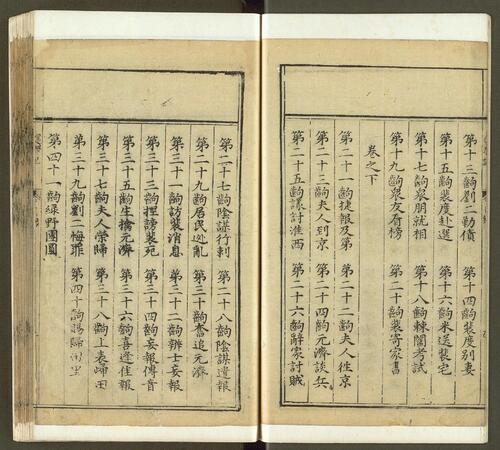 第十三齣劉二勒債　第十四齣裴度別妻
第十五齣裴度赴選　第十六齣米送裴宅
第十七齣眾朋就相　第十八齣棘闈考試
第十九齣眾友看榜　第二十齣裴寄家書
卷之下
第二十一齣捷報及第　第二十二齣夫人徃京
第二十三齣夫人到京　第二十四齣元濟談兵
第二十五齣謀討淮西　第二十六齣辭家討賊
第二十七齣陰謀行刺　第二十八齣陰謀遺報
第二十九齣居民迯亂　第三十齣奮追元濟
第三十一齣訪裴消息　第三十二齣辨士妄報
第三十三齣捏謗裴苑　第三十四齣妄報傳音
第三十五齣生擒元濟　第三十六齣喜逢佳報
第三十七齣夫人榮歸　第三十八齣上表歸田
第三十九齣劉二悔罪　第四十齣賜歸田里
第四十一齣綠野團圓